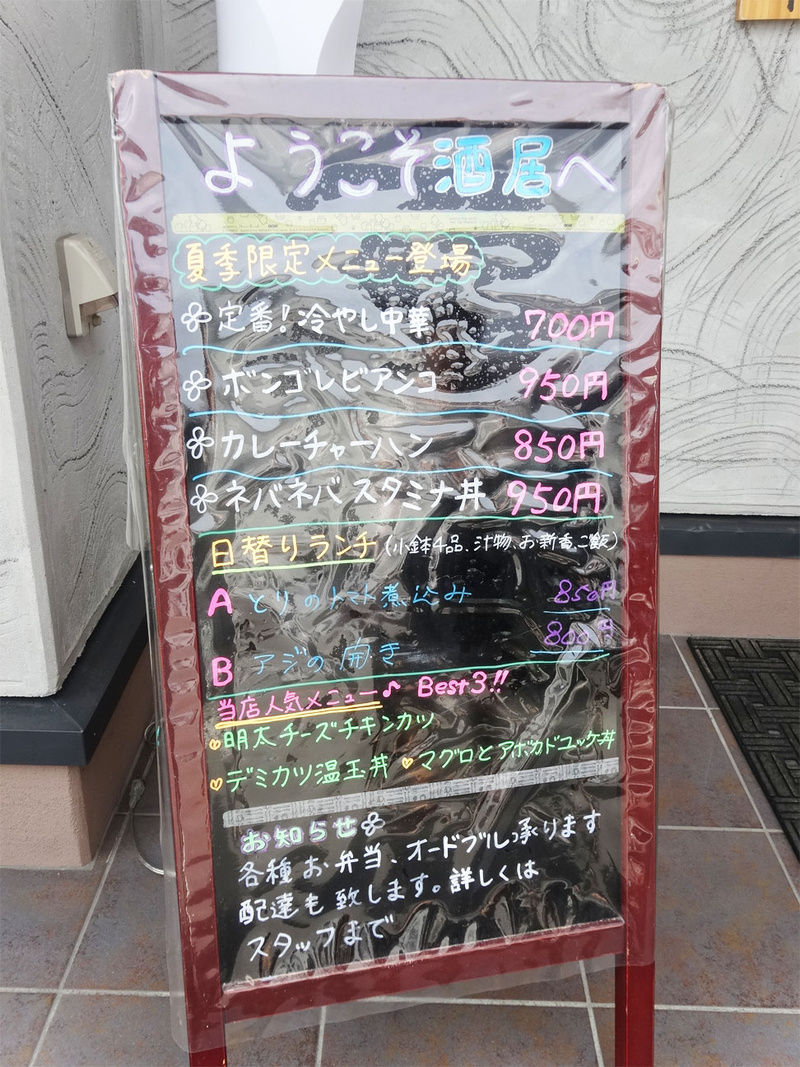 ようこそ酒居へ
夏季限定メニュー登場
定番!冷やし中華 700円
ボンゴレビアンコ 950円
カレーチャーハン 850円
ネバネバスタミナ丼 950円
日替りランチ (小鉢4品、汁物、お新香、ご飯)
A とりのトマト煮込み 850円
B アジの開き 800円
当店人気メニュー♪ Best3!!
♡明太チーズチキンカツ
♡デミカツ温玉丼 ♡マグロとアボカドユッケ丼
お知らせ
各種お弁当、オードブル承ります
配達も致します。詳しくは
スタッフまで